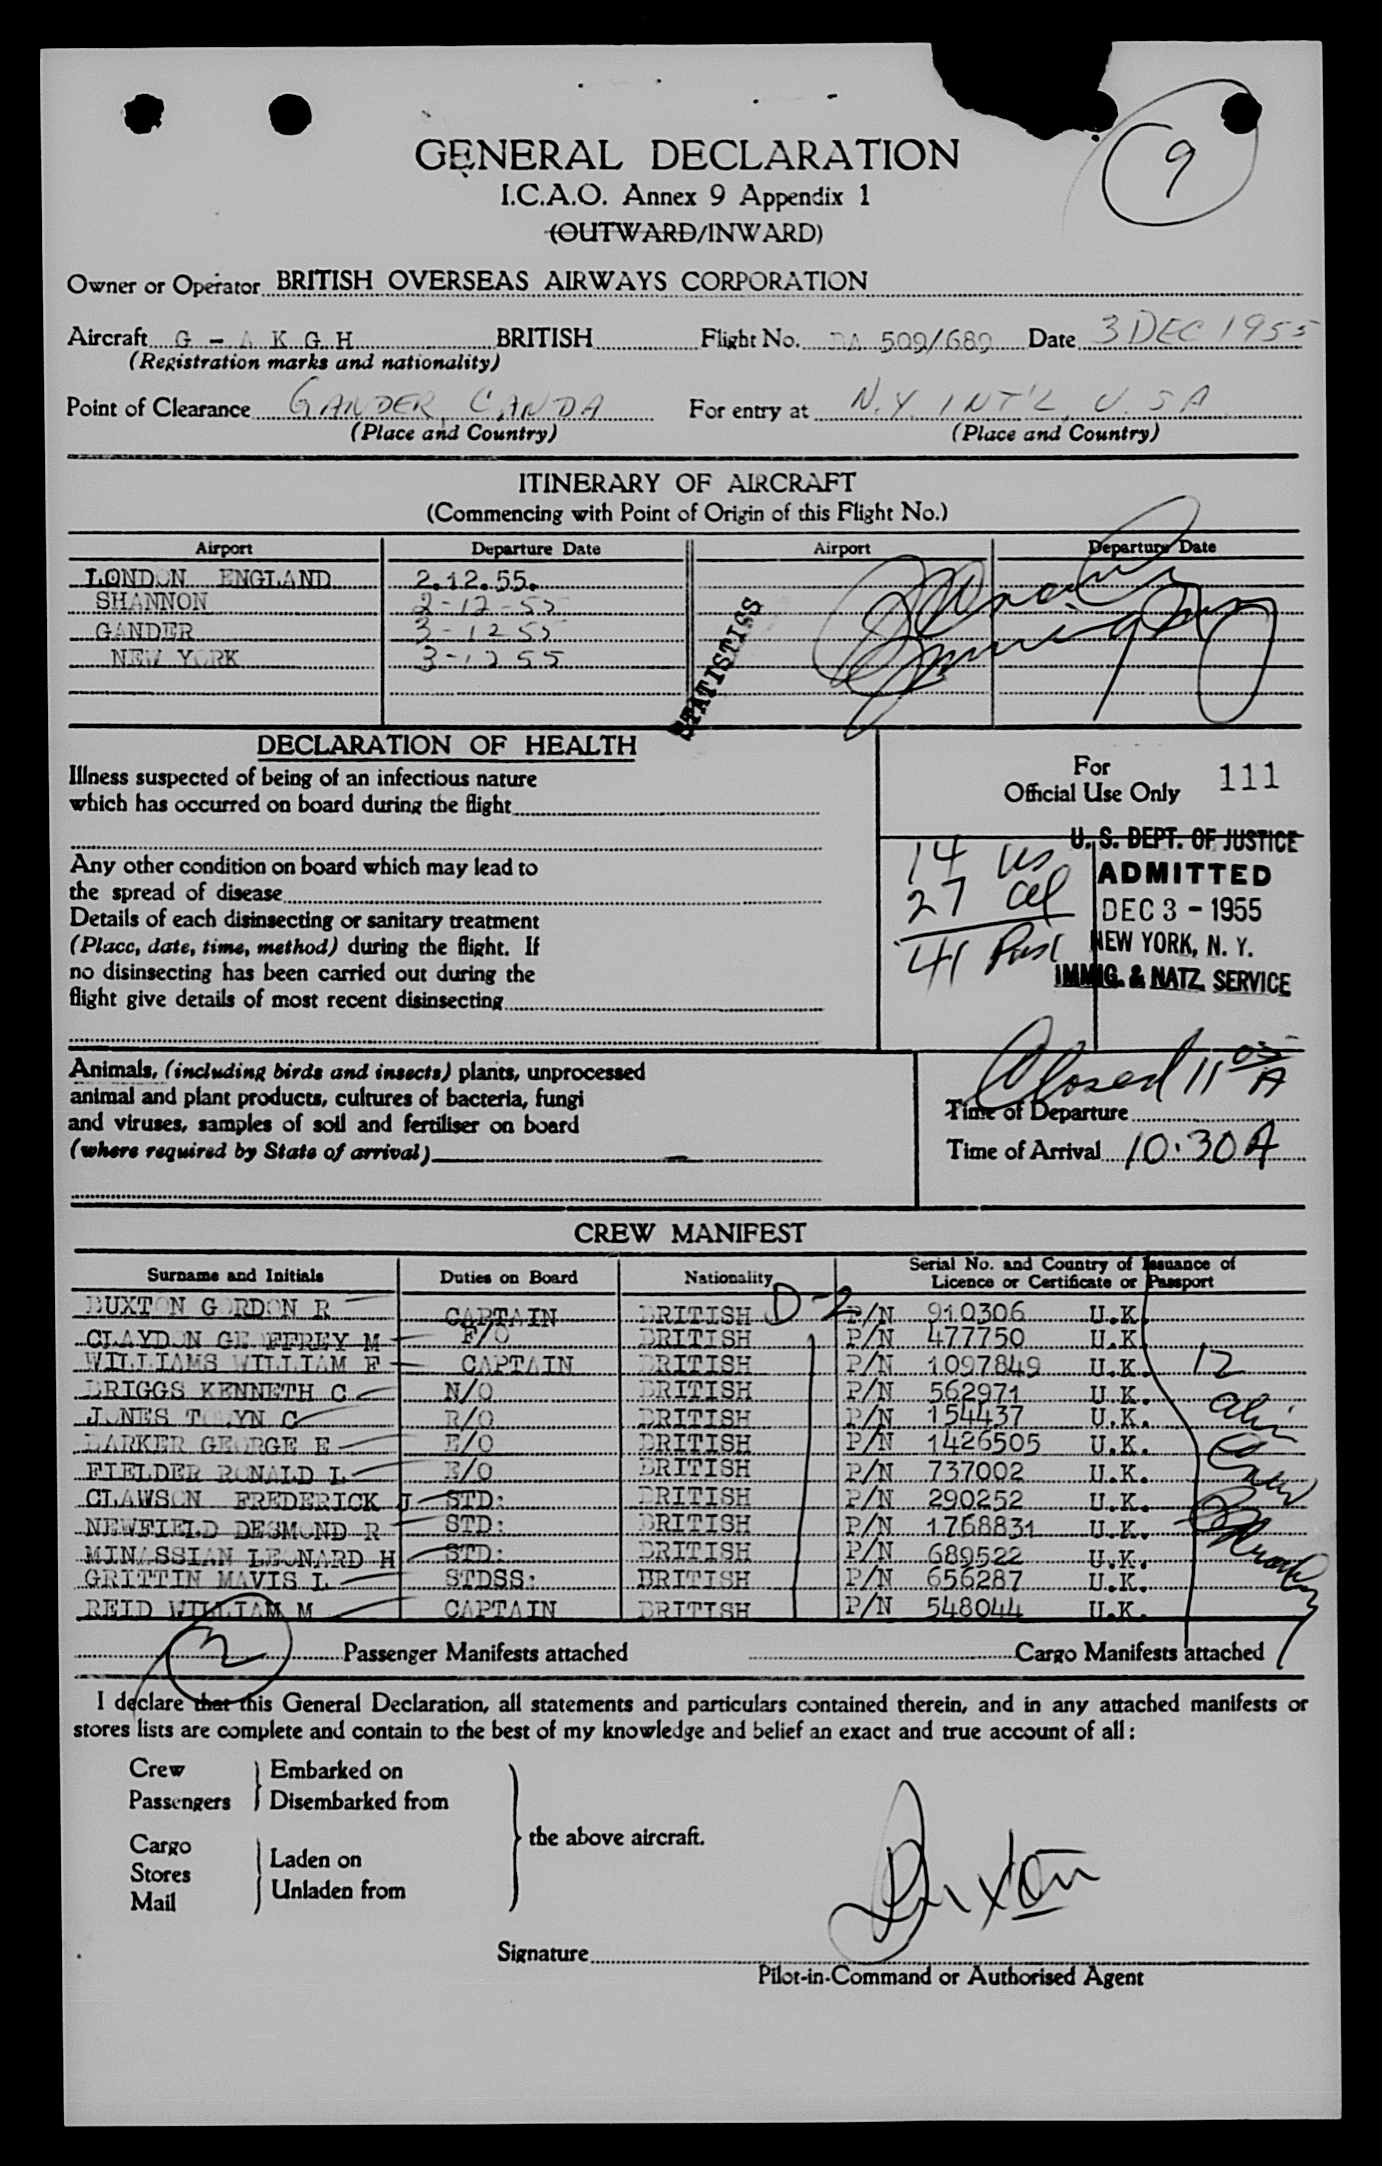 9
GENERAL DECLARATION
I.C.A.O. Annex 9 Appendix 1
(OUTWARD/INWARD)
Owner or Operator BRITISH OVERSEAS AIRWAYS CORPORATION
Aircraft G - A K G H BRITISH Flight No. BA 509/689 Date 3 DEC 1955
(Registration marks and nationality)
Point of Clearance GANDER, CANDA For entry at N.Y. INT'L, U.S.A
(Place and Country) (Place and Country)
ITINERARY OF AIRCRAFT
(Commencing with Point of Origin of this Flight No.)
Airport Departure Date Airport Departure Date
LONDON ENGLAND 2.12.55.
SHANNON 2-12-55
GANDER 3-12 55
NEW YORK 3-12 55
STATISTISS
DECLARATION OF HEALTH
Illness suspected of being of an infectious nature
which has occurred on board during the flight
Any other condition on board which may lead to
the spread of disease
Details of each disinsecting or sanitary treatment
(Place, date, time, method) during the flight. If
no disinsecting has been carried out during the
flight give details of most recent disinsecting
For
Official Use Only 111
14 US
27 Al
41 Pass
U. S. DEPT. OF JUSTICE
ADMITTED
DEC 3 - 1955
NEW YORK, N. Y.
IMMIG. & NATZ. SERVICE
Animals, (including birds and insects) plants, unprocessed
animal and plant products, cultures of bacteria, fungi
and viruses, samples of soil and fertiliser on board
(where required by State of arrival) —
Closed 11 05 A
Time of Departure
Time of Arrival 10:30 A
CREW MANIFEST
Surname and Initials Duties on Board Nationality Serial No. and Country of Issuance of Licence or Certificate or Passport
D-2
BUXTON GORDON R CAPTAIN BRITISH P/N 910306 U.K.
CLAYDON GEOFFREY M F/O BRITISH P/N 477750 U.K.
WILLIAMS WILLIAM F CAPTAIN BRITISH P/N 1097849 U.K.
BRIGGS KENNETH C N/O BRITISH P/N 562971 U.K.
JONES TOLYN C R/O BRITISH P/N 154437 U.K.
BARKER GEORGE E E/O BRITISH P/N 1426505 U.K.
FIELDER RONALD L E/O BRITISH P/N 737002 U.K.
CLAWSON FREDERICK J STD: BRITISH P/N 290252 U.K.
NEWFIELD DESMOND R STD: BRITISH P/N 1768831 U.K.
MINASSIAN LEONARD H STD: BRITISH P/N 689522 U.K.
GRITTIN MAVIS L STDSS: BRITISH P/N 656287 U.K.
REID WILLIAM M CAPTAIN BRITISH P/N 548044 U.K.
12
2 Passenger Manifests attached Cargo Manifests attached
I declare that this General Declaration, all statements and particulars contained therein, and in any attached manifests or
stores lists are complete and contain to the best of my knowledge and belief an exact and true account of all:
Crew
Passengers
Embarked on
Disembarked from
Cargo
Stores
Mail
Laden on
Unladen from
the above aircraft.
Buxton
Signature
Pilot-in-Command or Authorised Agent